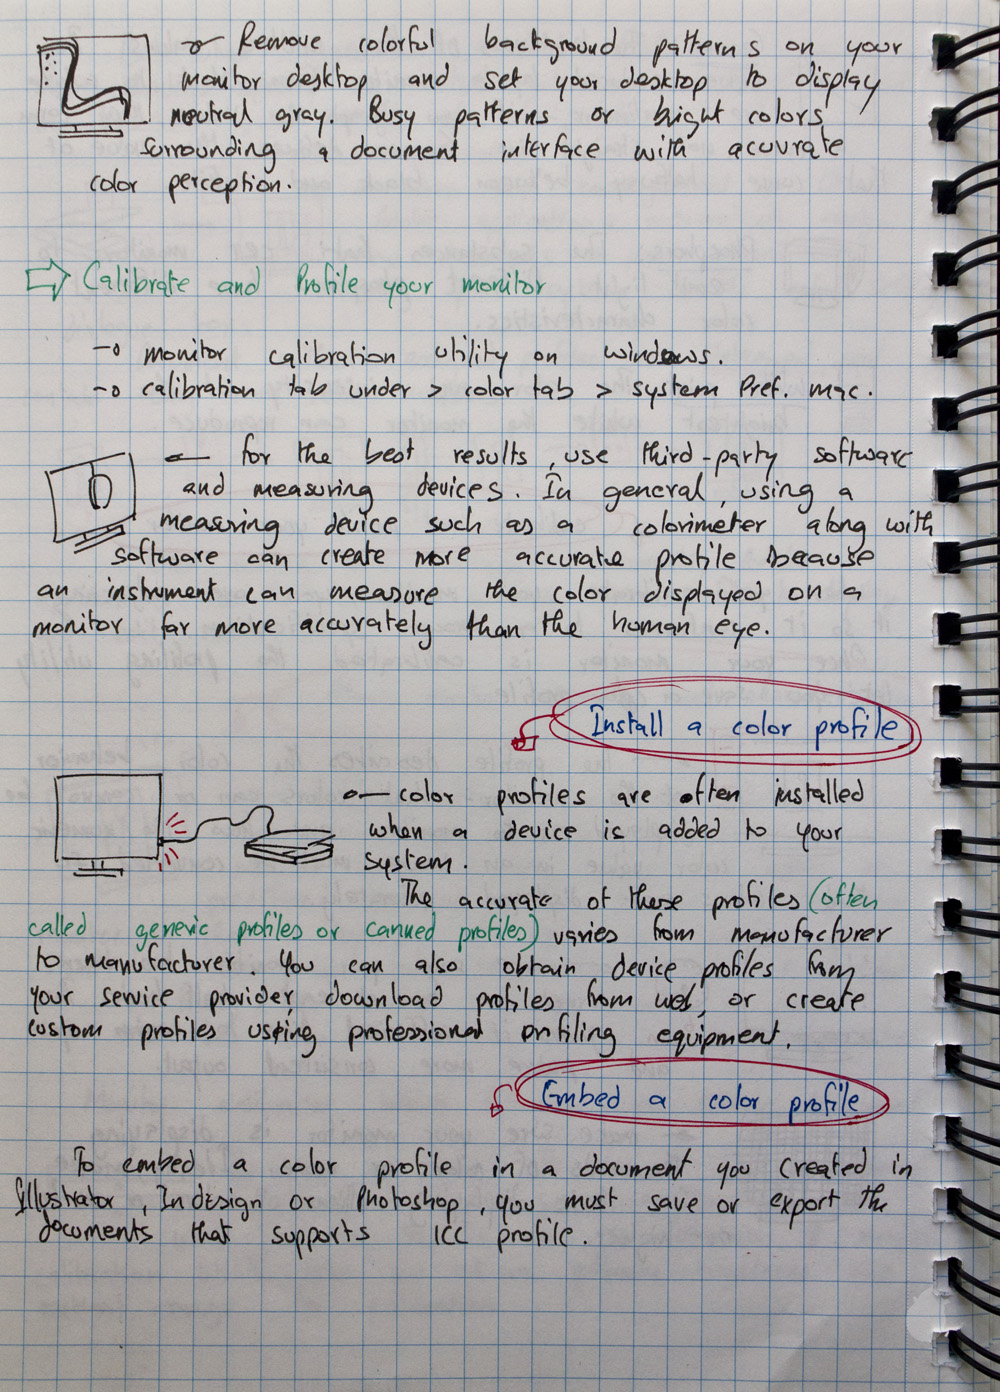 Remove colorful background patterns on your
monitor desktop and set your desktop to display
neutral gray. Busy patterns or bright colors
surrounding a document interface with accurate
color perception.
Calibrate and Profile your monitor
monitor calibration utility on windows.
calibration tab under > color tab > system Pref. mac.
for the best results, use third-party software
and measuring devices. In general, using a
measuring device such as a colorimeter along with
software can create more accurate profile because
an instrument can measure the color displayed on a
monitor far more accurately than the human eye.
Install a color profile
color profiles are often installed
when a device is added to your
system.
The accurate of these profiles (often
called generic profiles or canned profiles) varies from manufacturer
to manufacturer. You can also obtain device profiles from
your service provider, download profiles from web, or create
custom profiles using professional profiling equipment.
Embed a color profile
To embed a color profile in a document you created in
Illustrator, Indesign or Photoshop, you must save or export the
documents that supports ICC profile.